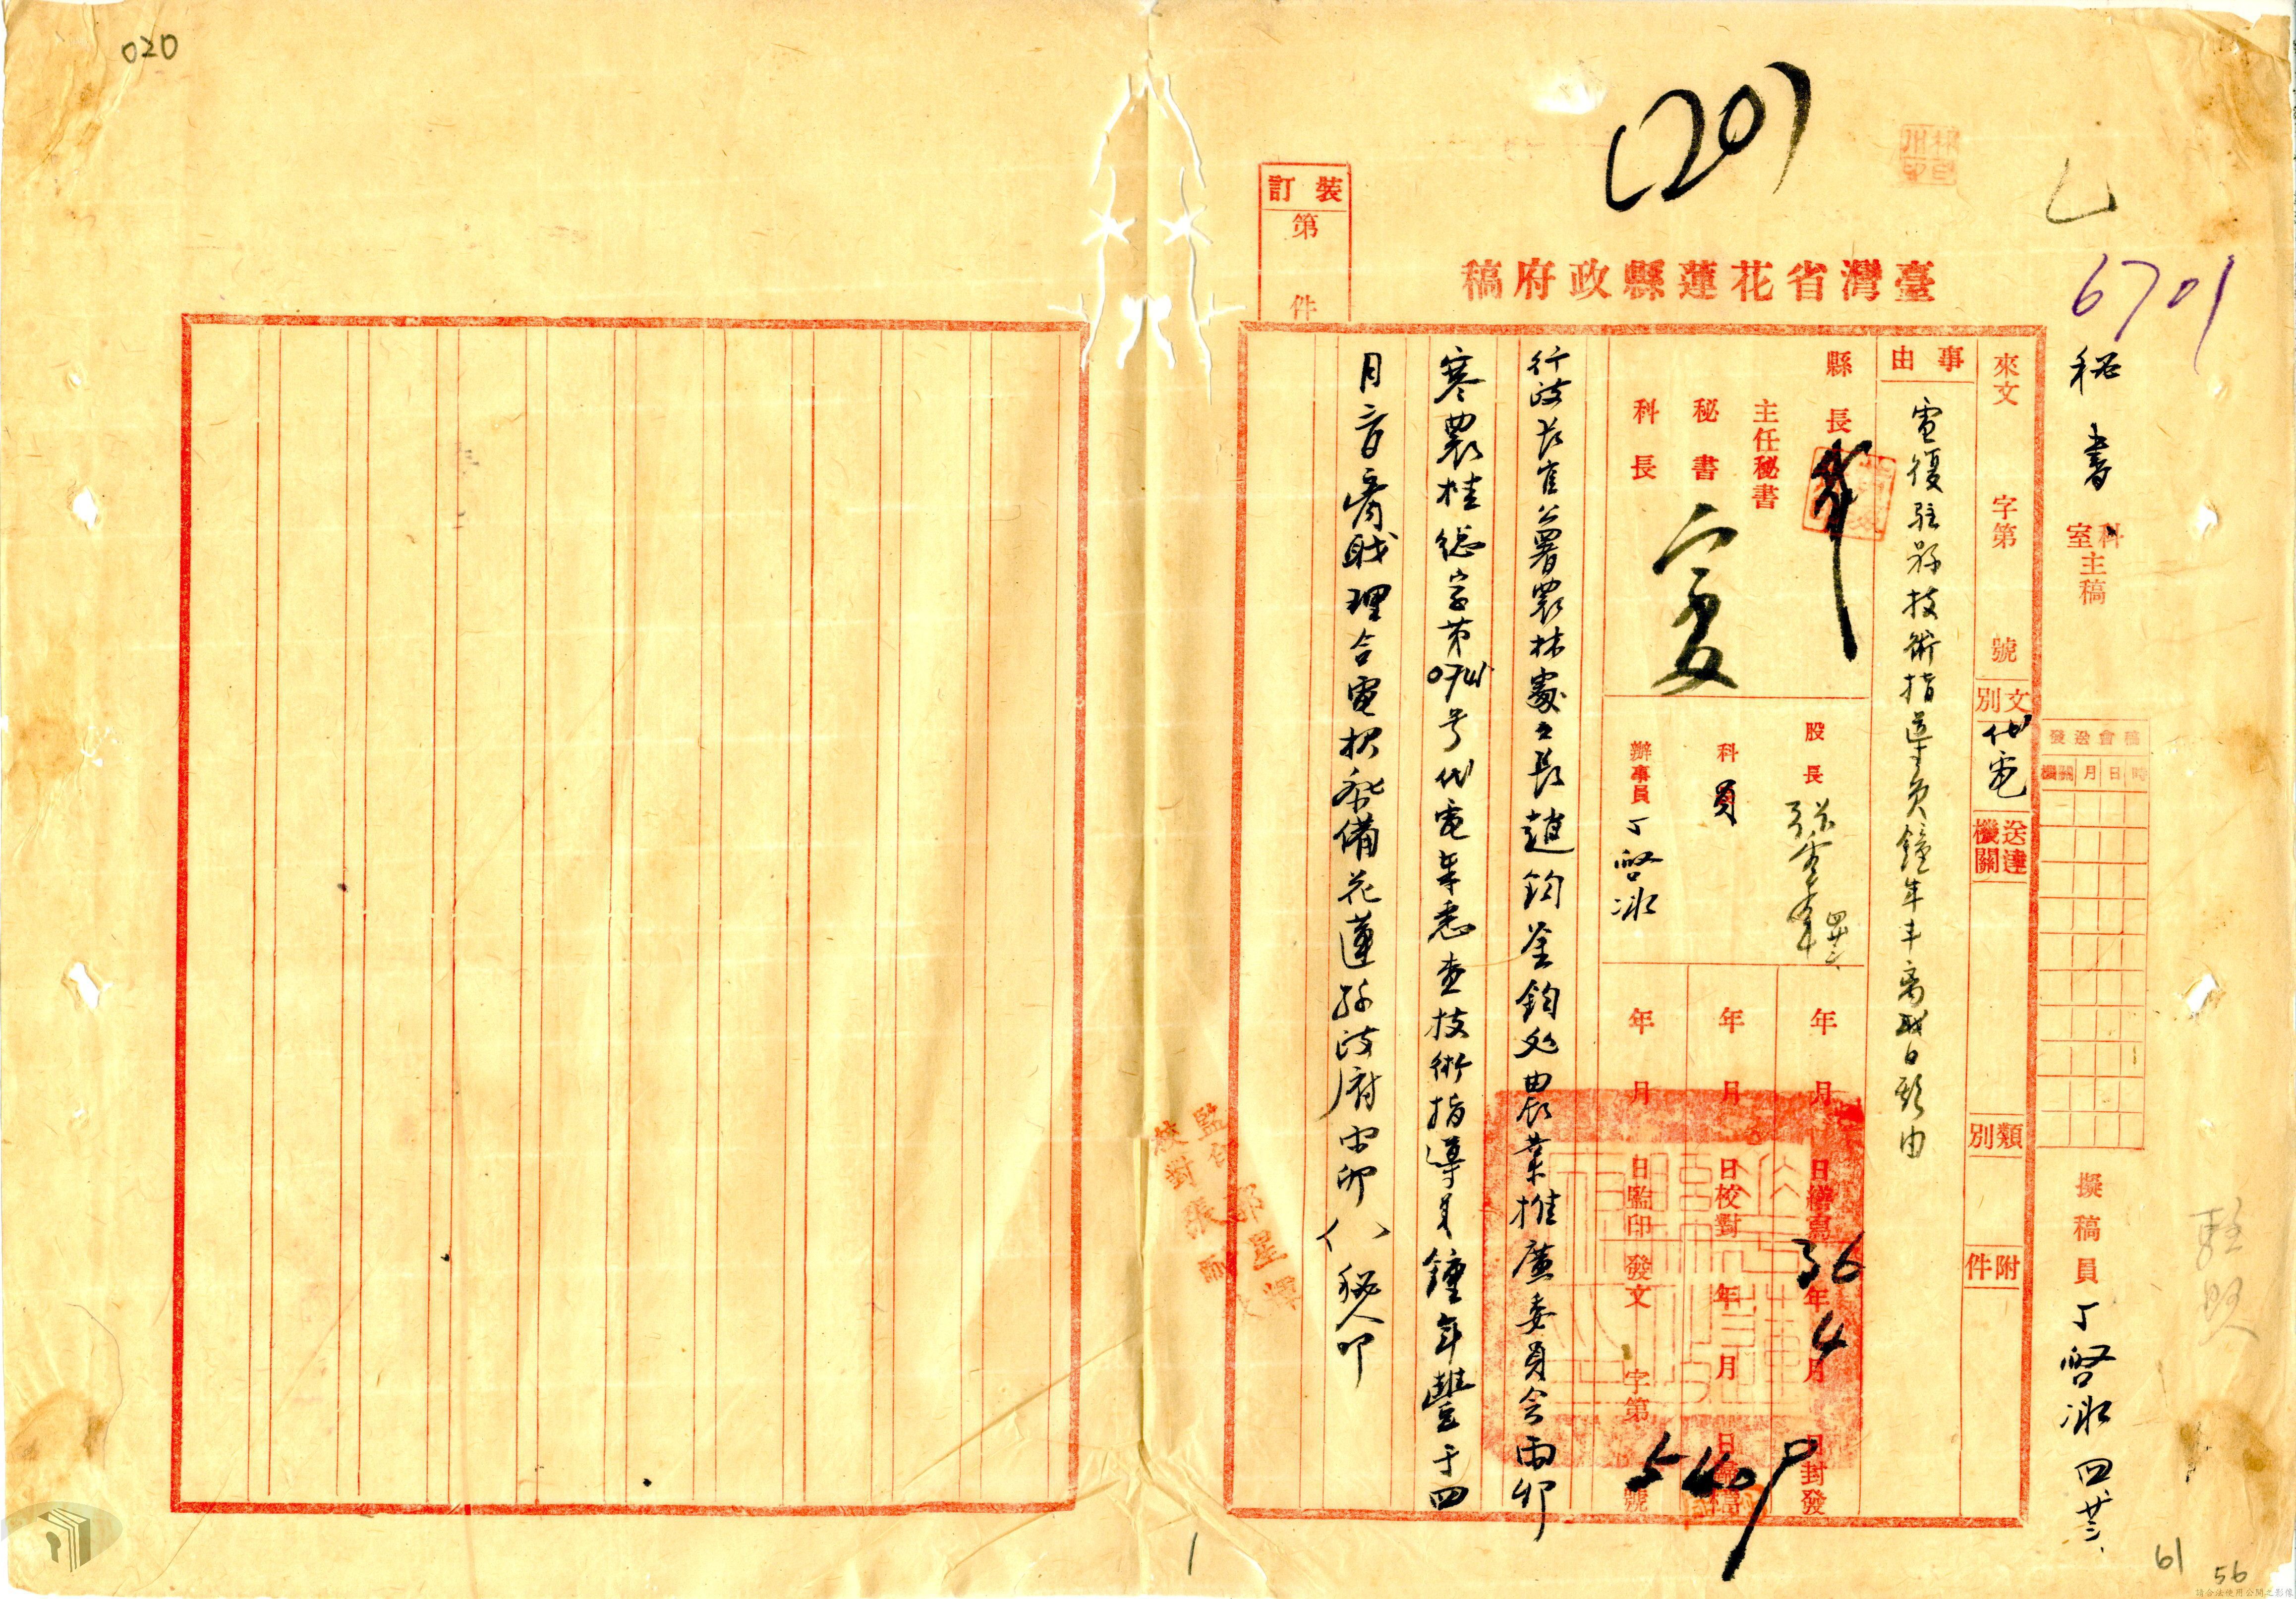 020
(201)
乙
6701
臺灣省花蓮縣政府稿
裝訂
第
件
秘書
科室主稿
稿會送發
機關 月 日 時
擬稿員
丁啓冰 四 廿三
來文
字第
號
文別
代電
送達機關
類別
附件
事由
電復駐縣技術指導員鐘年丰离職日期由
縣長
主任秘書
秘書
科長
股長
科員
辦事員 丁啓冰
年 月 日繕寫
年 月 日校對
年 月 日監印
36年4月 日封發
年 月 日歸檔
發文 字第 號
行政長官公署農林處處長趙鈞鉴鈞处農業推廣委員会丙卯
寒農桂總字第0741号代電奉悉查技術指導員鐘年豐于四
月
離職理合電报祭備花蓮縣政府
卯
秘人叩
監印
校對 張
1
61
56
請合法使用公開之影像